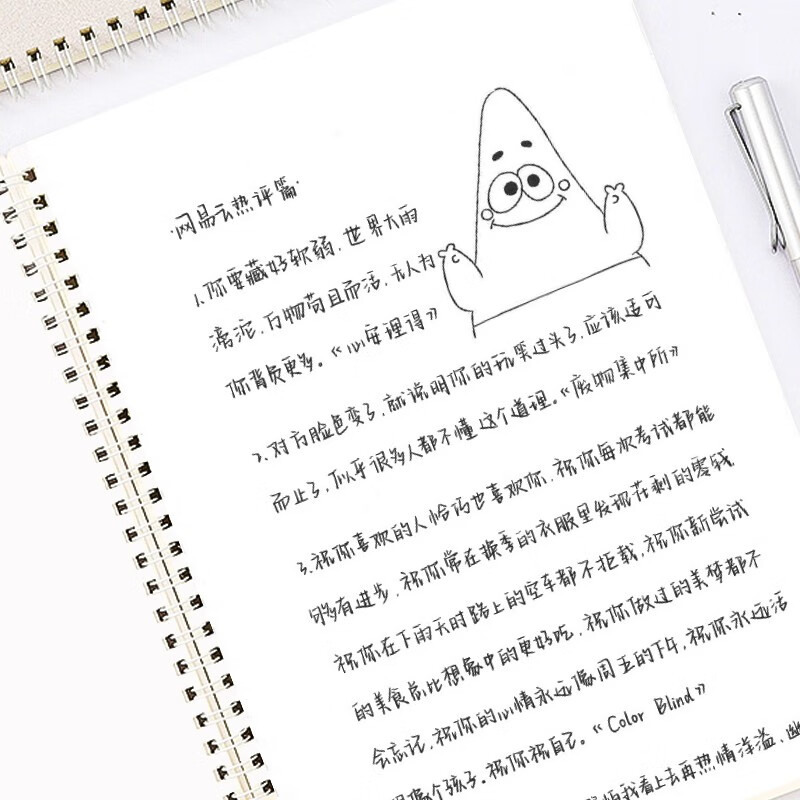 ·网易云热评篇·
1.你要藏好软弱,世界大雨
滂沱,万物苟且而活,无人为
你背负更多。《心安理得》
2.对方脸色变了,就说明你的玩笑过头了,应该适可
而止了,似乎很多人都不懂这个道理。《废物集中所》
3.祝你喜欢的人恰巧也喜欢你,祝你每次考试都能
够多有进步,祝你常在换季的衣服里发现花剩的零钱,
祝你在下雨天时路上的空车都不拒载,祝你新尝试
的美食总比想象中的更好吃,祝你做过的美梦都不
会忘记,祝你的心情永远像周五的下午,祝你永远活
得像个孩子,祝你祝自己。《Color Blind》
怕我看上去再热情洋溢、幽